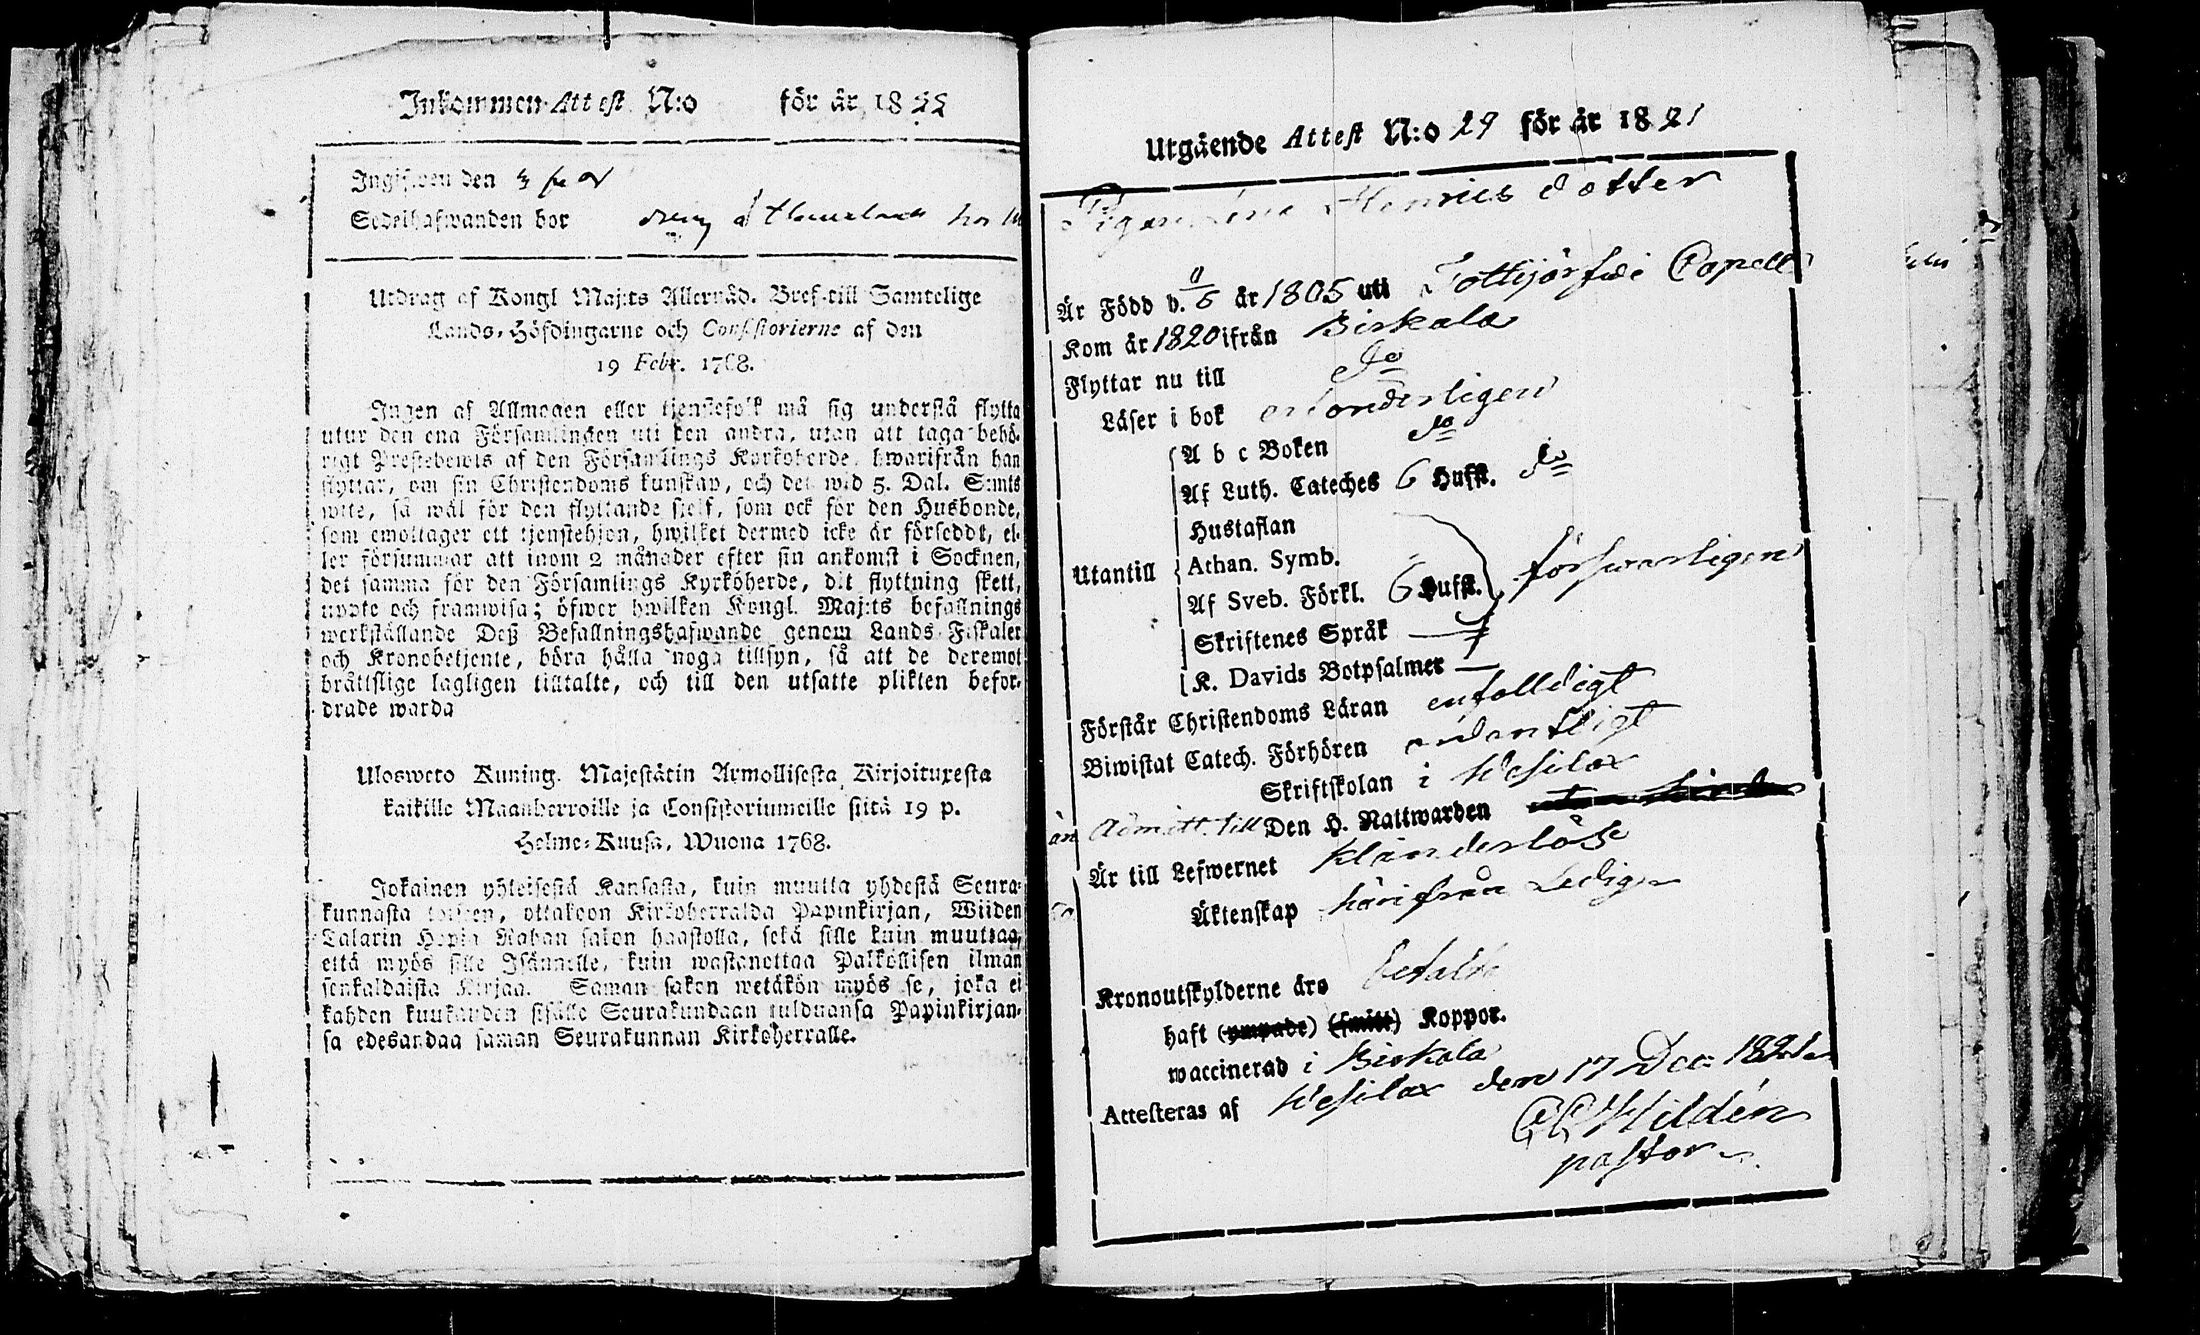 Inkommen Attest N:o för år 1822
Ingifwen den
Sedelhafwanden bor
Utdrag af Kongl Maj:ts Allernåd. Bref till Samtelige
Lands-Höfdingarne och Consistorierne af den
19 Febr. 1768.
Ingen af Allmogen eller tjenstefolk må sig understå flytta
utur den ena Församlingen uti den andra, utan att taga behö-
rigt Prestebewis af den Församlings Kyrkoherde, hwarifrån han
flyttar, om sin Christendoms kunskap, och det wid 5. Dal. S:mts
wite, så wäl för den flyttande sjelf, som ock för den Husbonde,
som emottager ett tjenstehjon, hwilket dermed icke är förseddt, el-
ler försummar att inom 2 månader efter sin ankomst i Socknen,
det samma för den Församlings Kyrkoherde, dit flyttning skett,
uppte och framwisa; öfwer hwilken Kongl. Maj:ts befallnings
werkställande Deß Befallningshafwande genom Lands Fiskaler
och Kronobetjente, böra hålla noga tillsyn, så att de deremot
bråttslige lagligen tilltalte, och till den utsatte plikten befor-
drade warda
Ulosweto Kuning. Majestätin Armollisesta Kirjoituxesta
kaikille Maanherroille ja Consistoriumeille siitä 19 p.
Helme-Kuusa, Wuona 1768.
Jokainen yhteisestä Kansasta, kuin muutta yhdestä Seura-
kunnasta toiseen, ottakoon Kirkoherralda Papinkirjan, Wiiden
Talarin Hopia Rahan sakon haastolla, sekä sille kuin muuttaa,
että myös sille Isännelle, kuin wastanottaa Palkollisen ilman
senkaldaista Kirjaa. Saman sakon wetäkön myös se, joka ei
kahden kuukauden sisälle Seurakundaan tulduansa Papinkirjan-
sa edesandaa saman Seurakunnan Kirkoherralle.
Utgående Attest N:o 29 för år 1821
Pigan Lena Henrics dotter
Är Född d. 9/6 år 1805 uti Tottijärfwi Capell
Kom år 1820 ifrån Birkala
Flyttar nu till do
Läser i bok ordonderligen
A b c Boken do
Af Luth. Cateches 6 Hufst. do
Hustaflan
Athan. Symb.
Utantill
Af Sveb. Förkl. 6 Hufst. förswarligen
Skriftenes Språk
K. Davids Botpsalmer
Förstår Christendoms Läran enfalldigt
Biwistat Catech. Förhören ordentligt
Skriftskolan i Wesilax
Admitt. till Den H. Nattwarden
Är till Lefwernet klanderlös
Äktenskap härifrån Ledig
Kronoutskylderne äro betalte
haft (ympade) (smitt) Koppor.
waccinerad i Birkala
Attesteras af Wesilax den 17 Dec 1821
Hildén
pastor